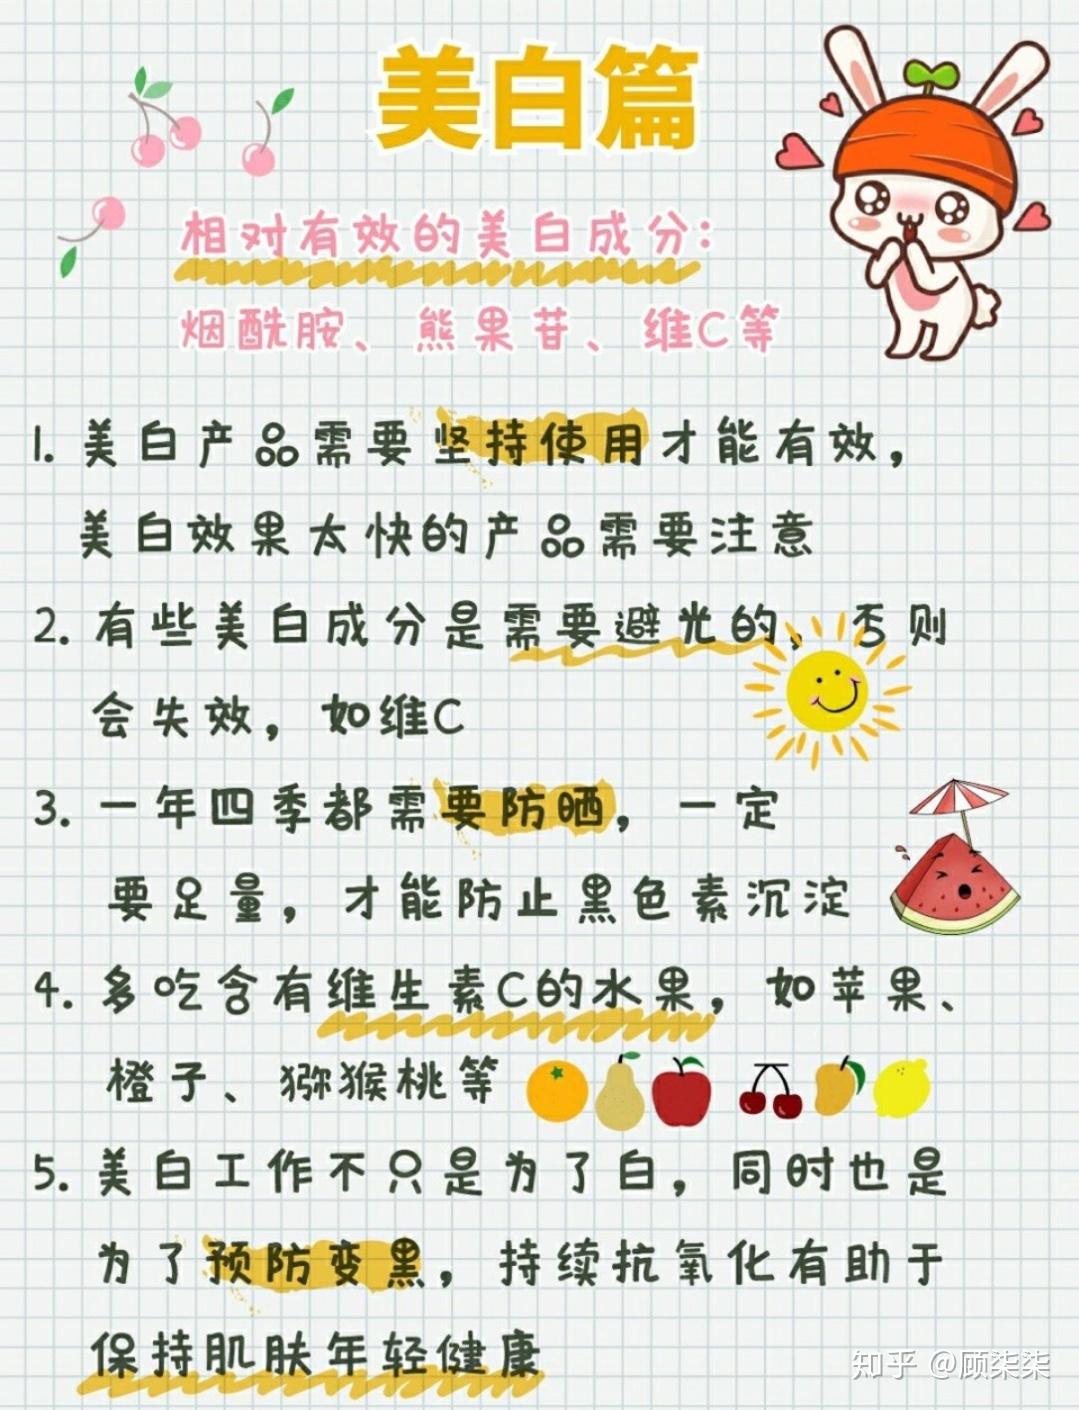 美白篇
相对有效的美白成分:
烟酰胺、熊果苷、维C等
1. 美白产品需要坚持使用才能有效,
美白效果太快的产品需要注意
2. 有些美白成分是需要避光的, 否则
会失效, 如维C
3. 一年四季都需要防晒, 一定
要足量, 才能防止黑色素沉淀
4. 多吃含有维生素C的水果, 如苹果、
橙子、猕猴桃等
5. 美白工作不只是为了白, 同时也是
为了预防变黑, 持续抗氧化有助于
保持肌肤年轻健康
知乎 @顾柒柒